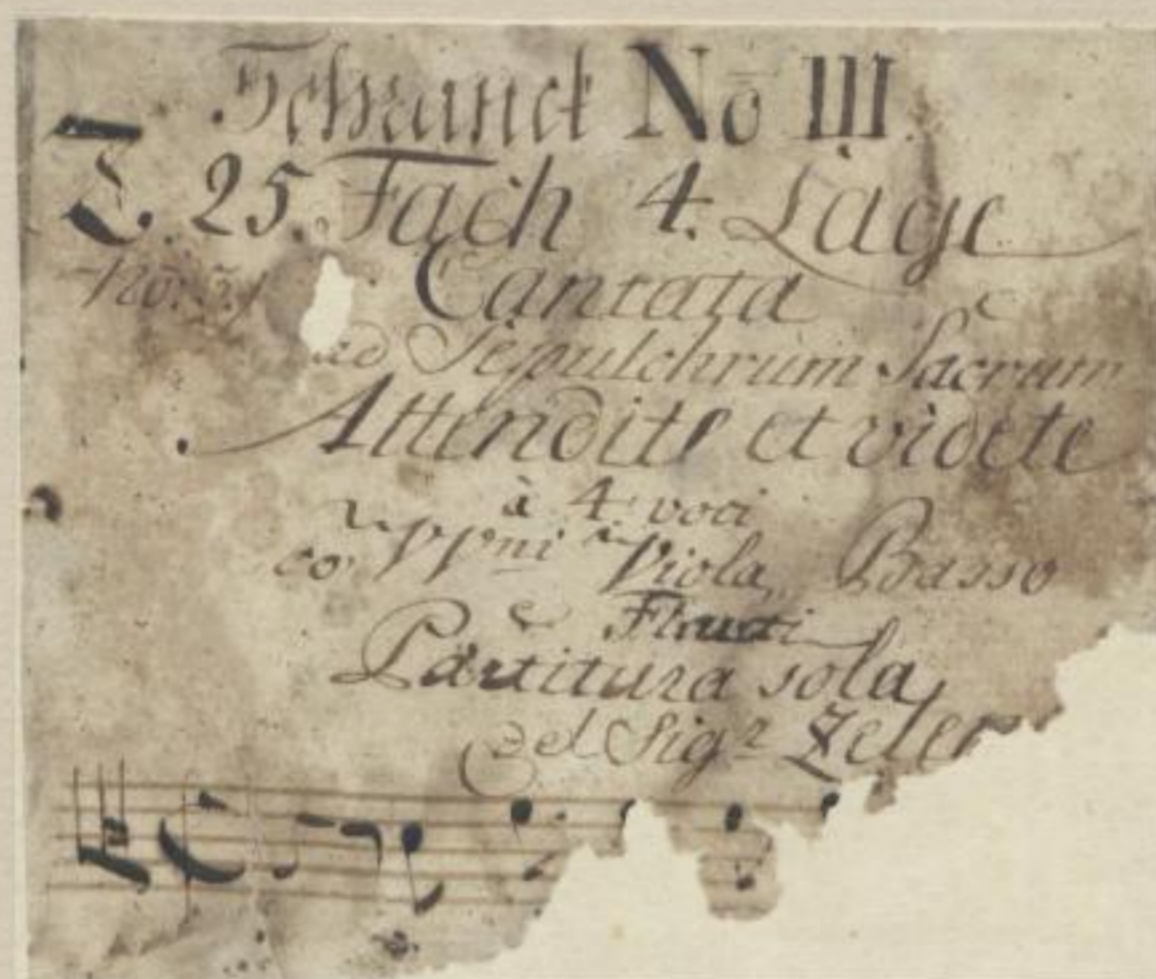 Schranck No III.
Z. 25. Fach 4. Lage
Cantata
ad Sepulchrum Sacrum
Attendite et videte
à 4 voci
co VVni Viola, Basso
e Flauti
Partitura sola
del Sigr Zelen